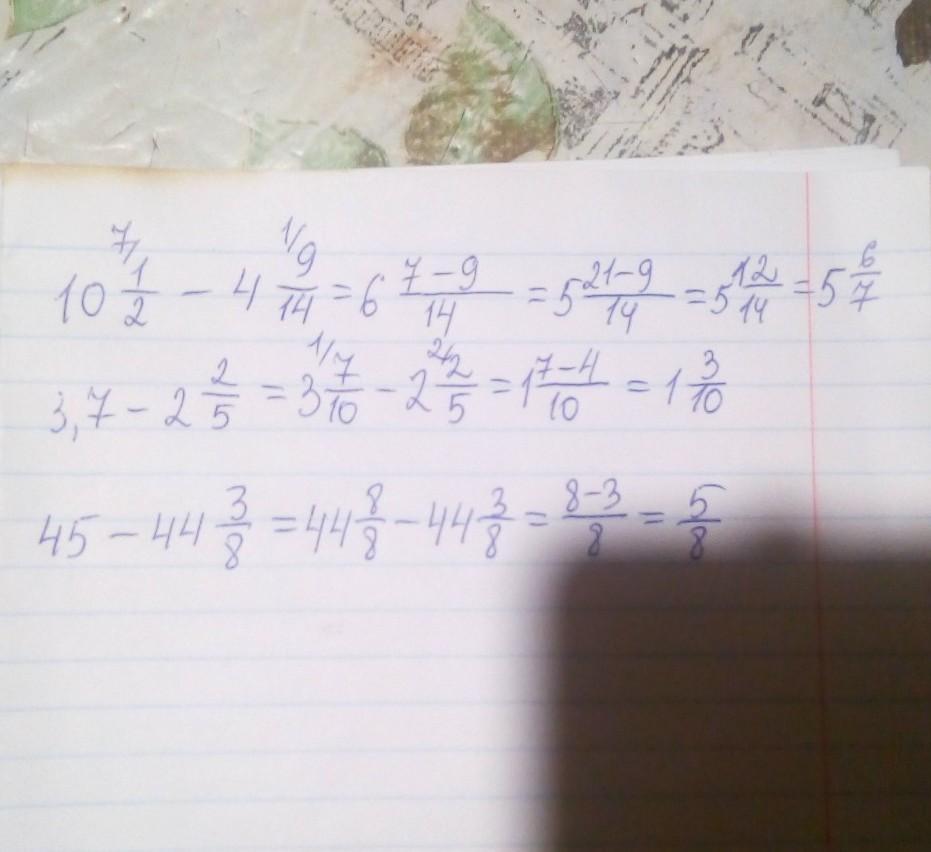 10 7/ 1/2 - 4 1/ 9/14 = 6 (7-9)/14 = 5 (21-9)/14 = 5 12/14 = 5 6/7
3,7 - 2 2/5 = 3 1/ 7/10 - 2 2/ 2/5 = 1 (7-4)/10 = 1 3/10
45 - 44 3/8 = 44 8/8 - 44 3/8 = (8-3)/8 = 5/8